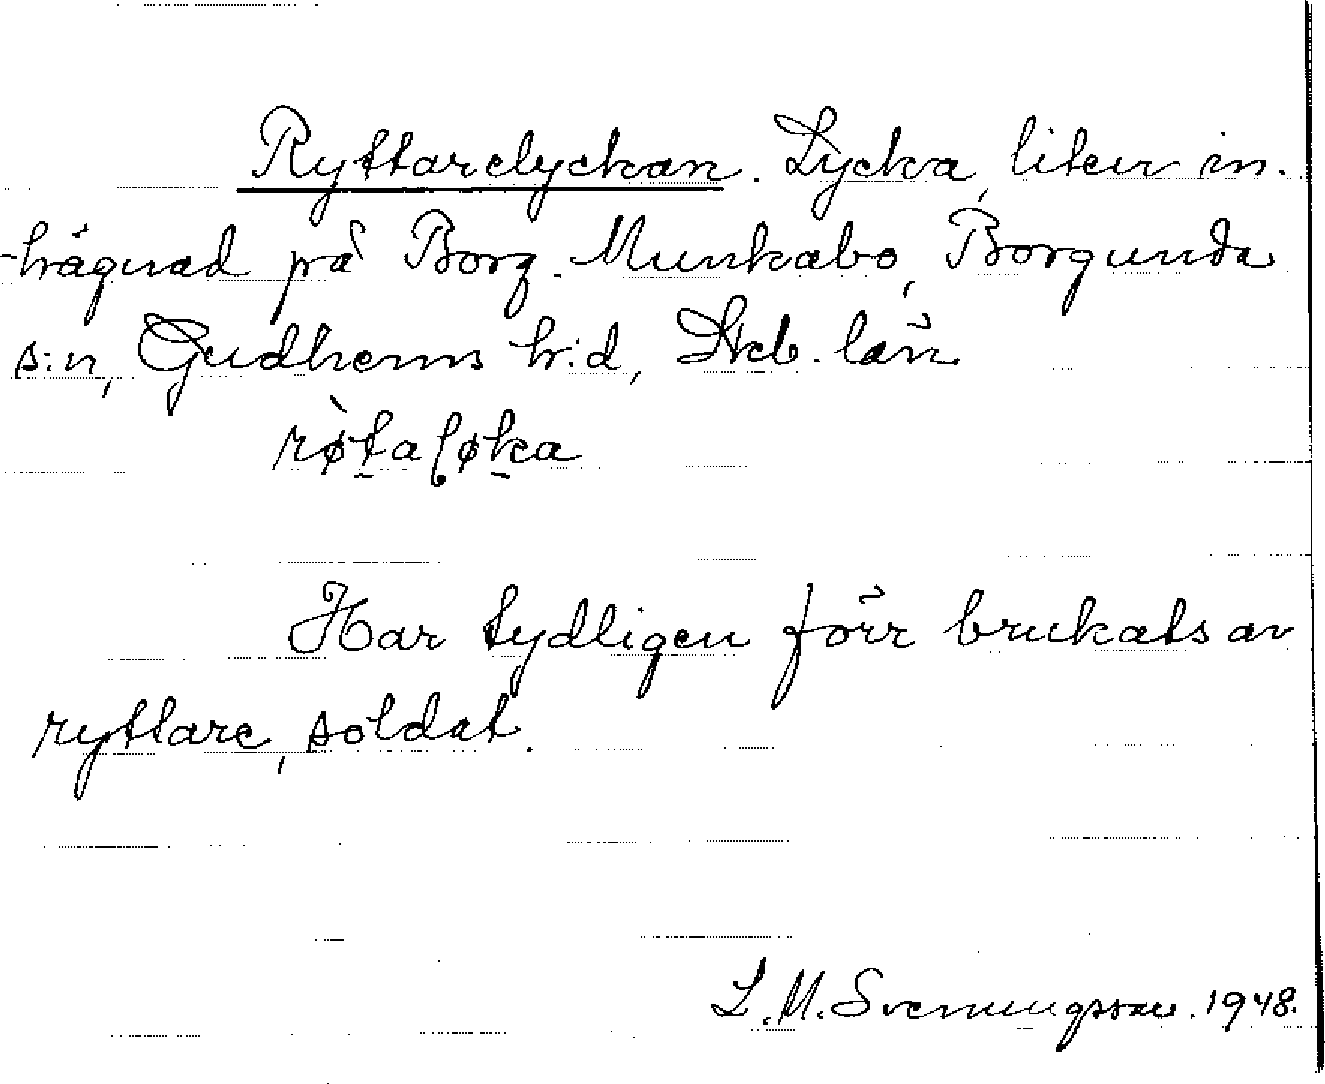 Ryttarelyckan. Lycka, liten in-
-hägnad på Borg. Munkabo, Borgunda
s:n, Gudhems h:d, Skb. län
rø̀ta ɭøka
Har tydligen förr brukats av
ryttare, soldat.
L. M. Svenungsson. 1948.